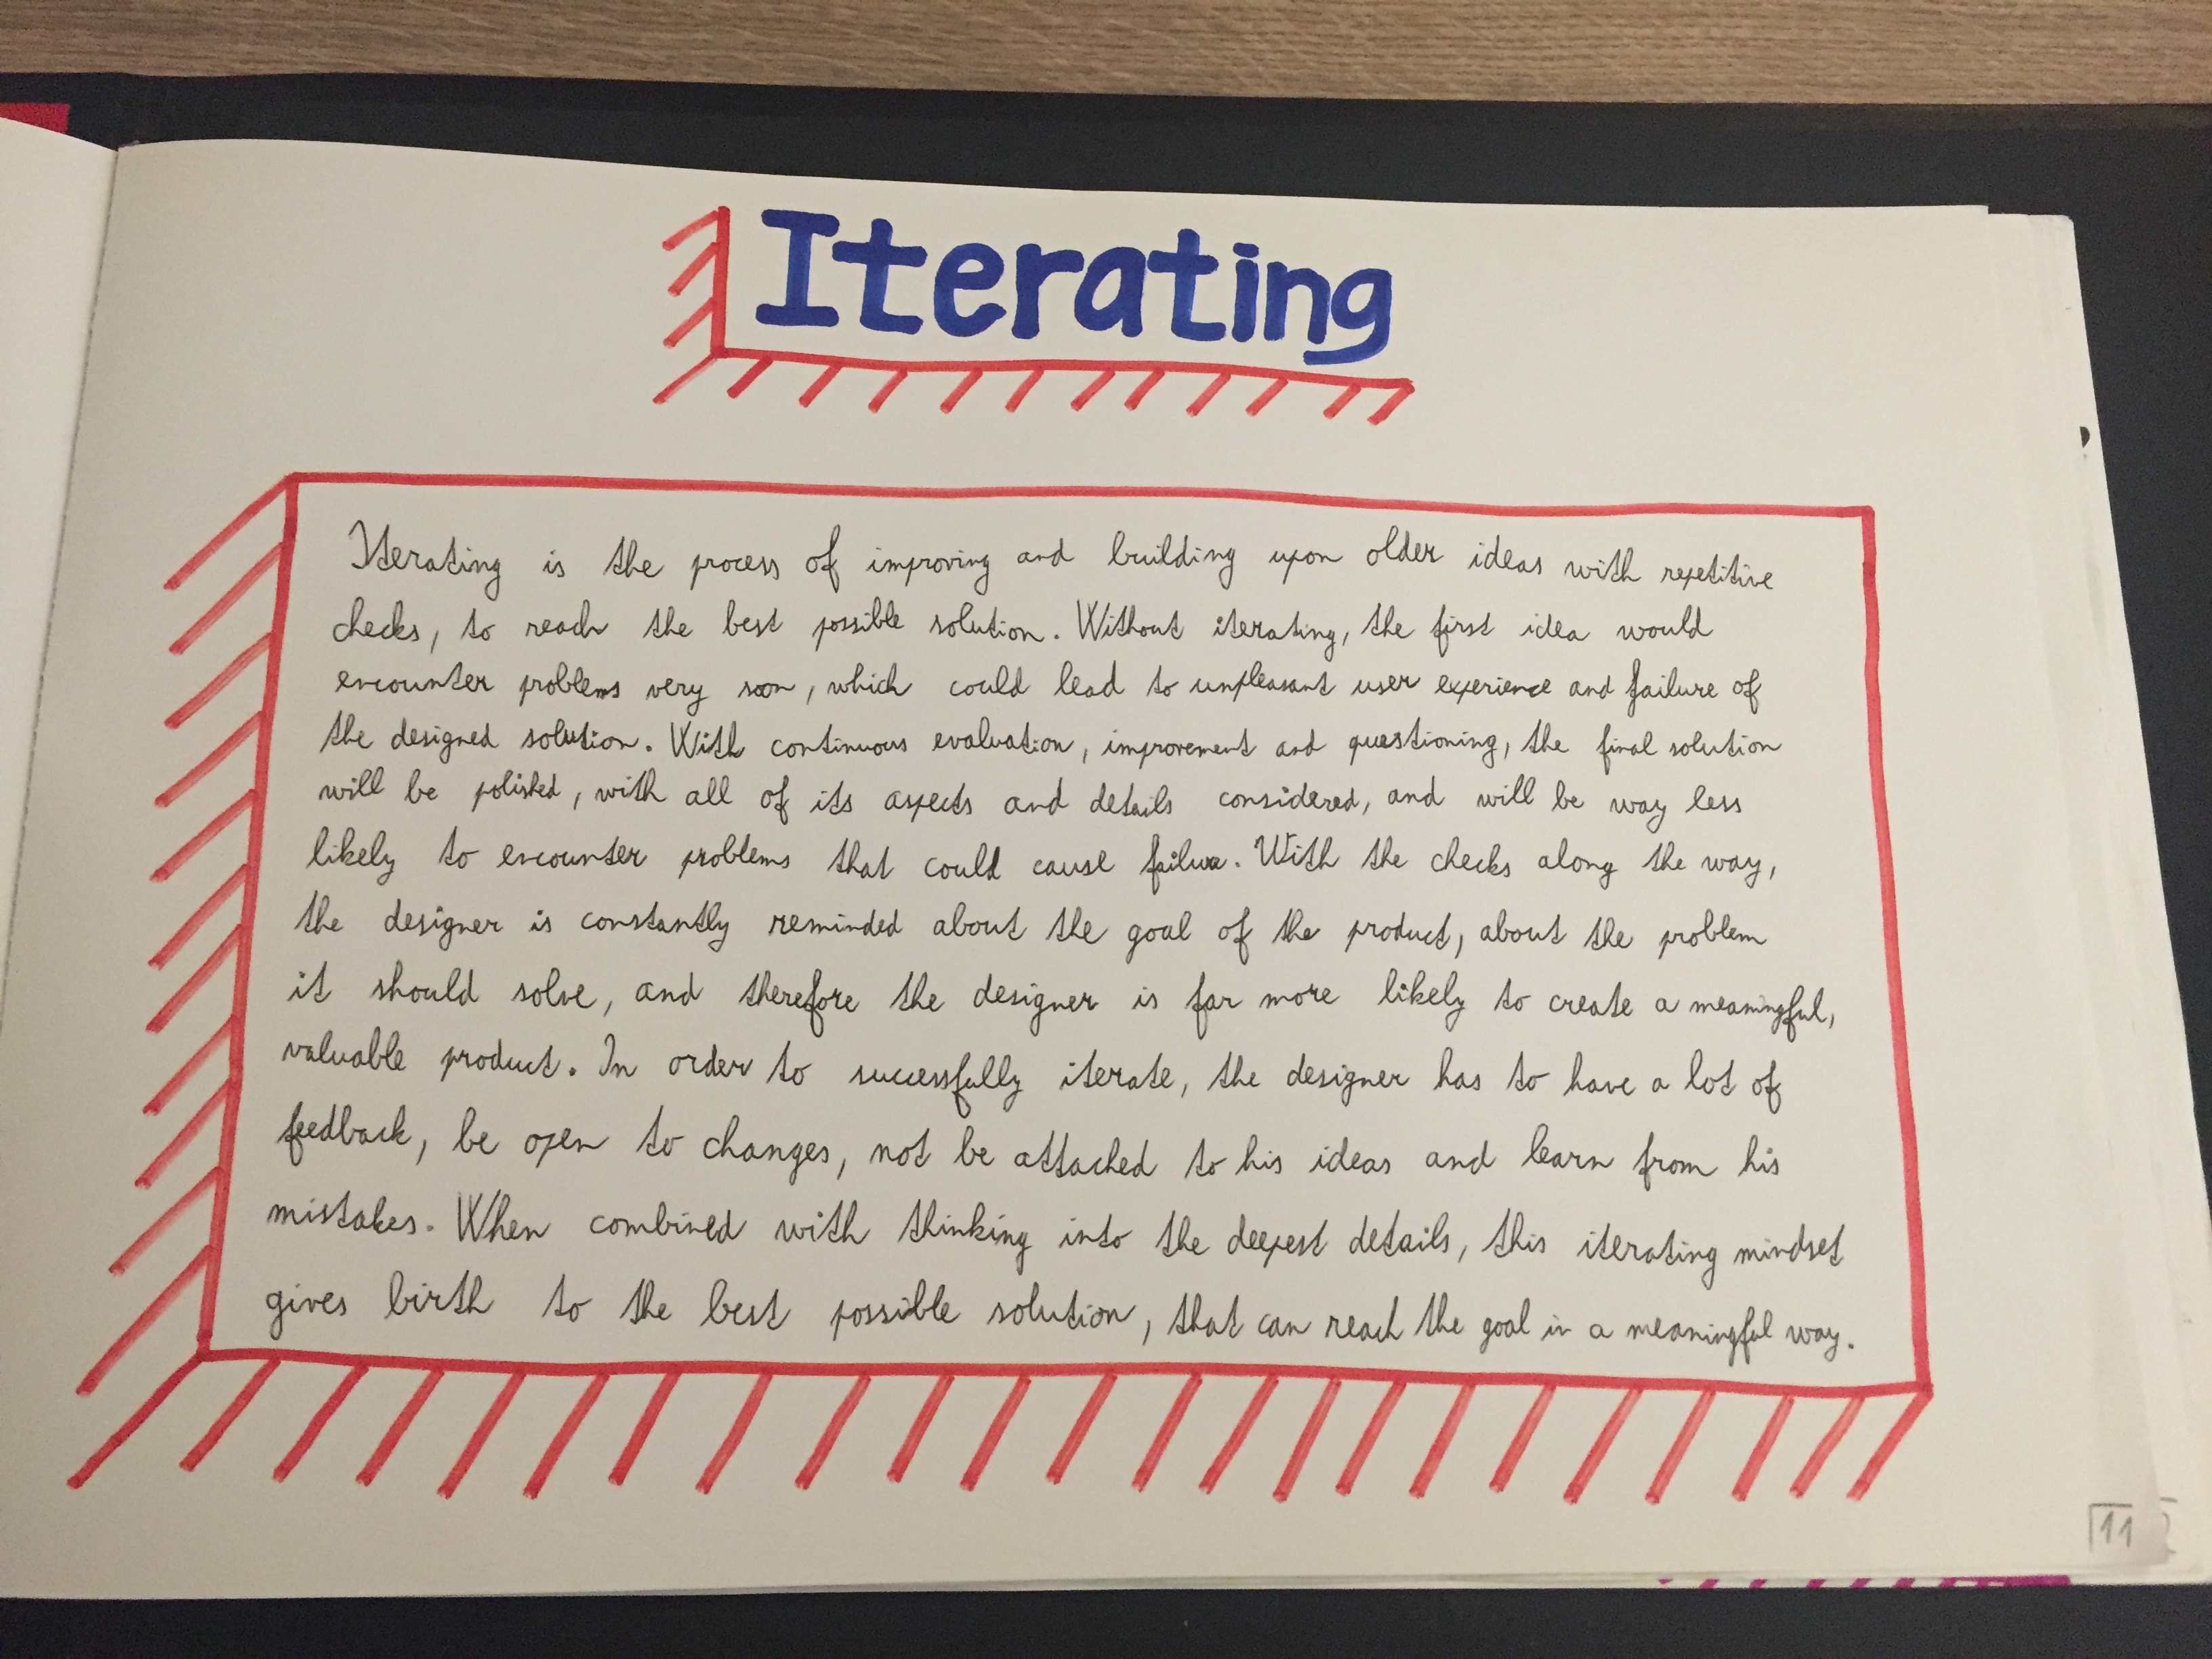 Iterating
Iterating is the process of improving and building upon older ideas with repetitive
checks, to reach the best possible solution. Without iterating, the first idea would
encounter problems very soon, which could lead to unpleasant user experience and failure of
the designed solution. With continuous evaluation, improvement and questioning, the final solution
will be polished, with all of its aspects and details considered, and will be way less
likely to encounter problems that could cause failure. With the checks along the way,
the designer is constantly reminded about the goal of the product, about the problem
it should solve, and therefore the designer is far more likely to create a meaningful,
valuable product. In order to successfully iterate, the designer has to have a lot of
feedback, be open to changes, not be attached to his ideas and learn from his
mistakes. When combined with thinking into the deepest details, this iterating mindset
gives birth to the best possible solution, that can reach the goal in a meaningful way.
11